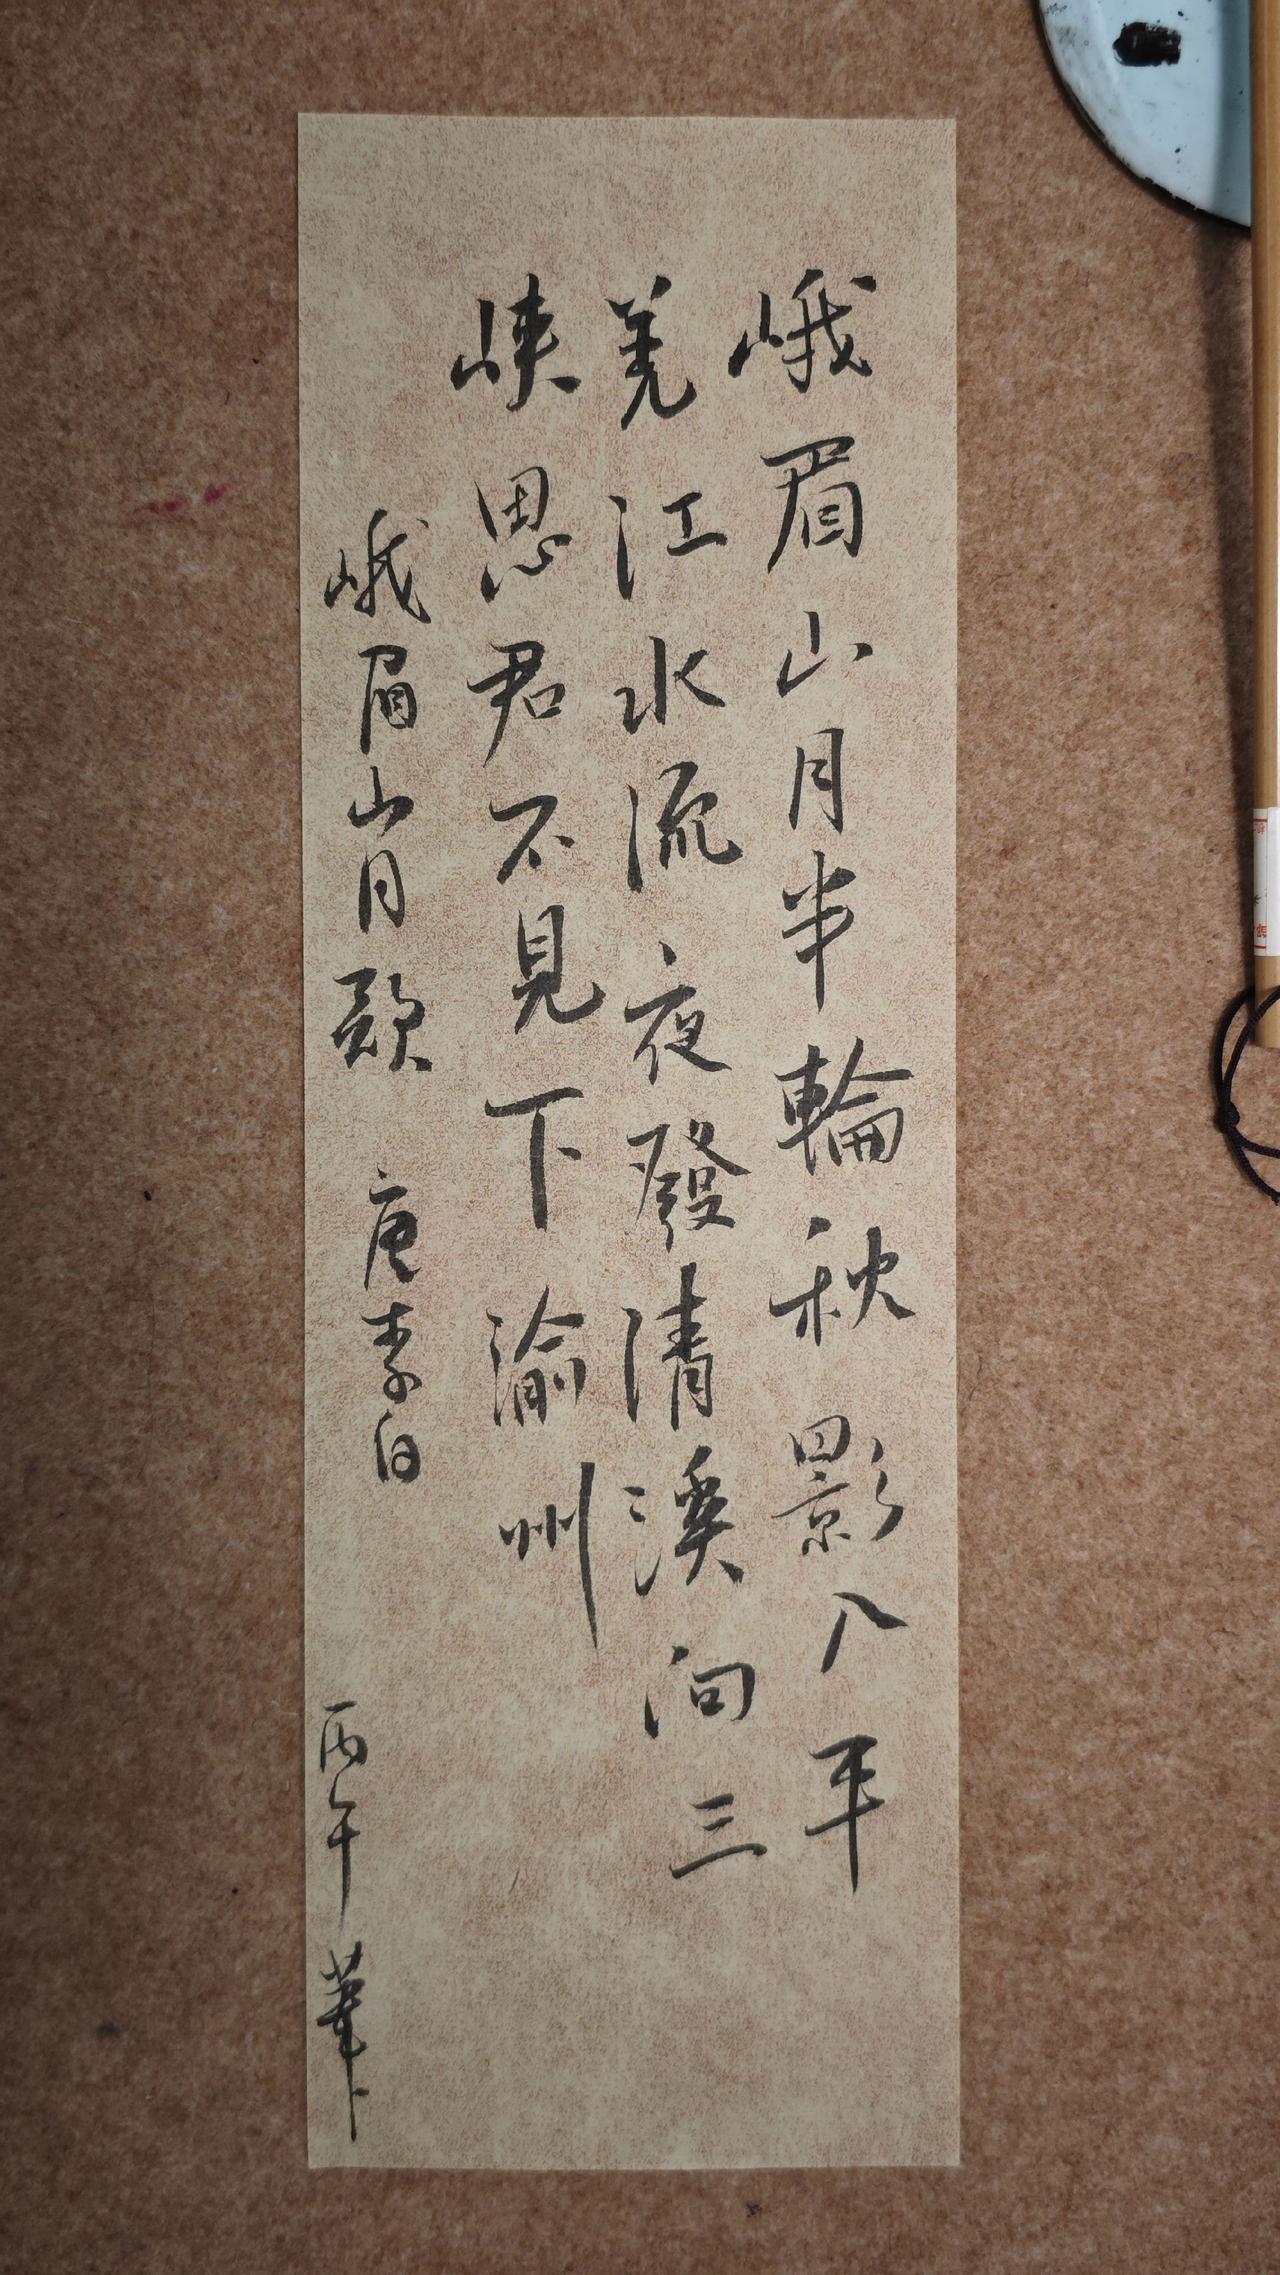 峨眉山月半輪秋影入平
羌江水流夜發清溪向三
峽思君不見下渝州
峨眉山月歌 唐李白
丙午 筆